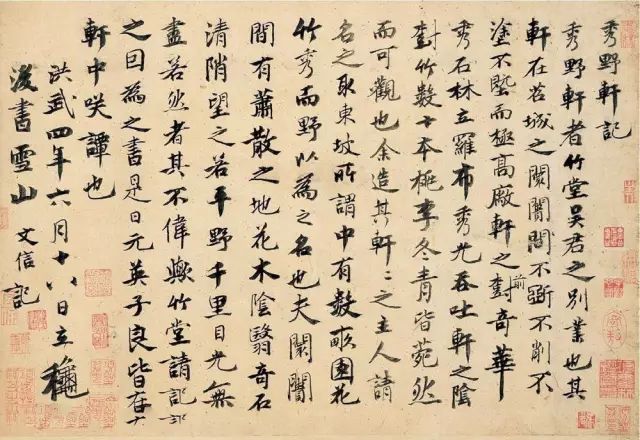 秀野軒記
秀野軒者竹堂吴君之别業也其
軒在苕城之闤闠間不斲不削不
塗不墍而極高敞軒之前對奇華
秀石林立羅布秀光吞吐軒之陰
對竹數十本桃李冬青皆菀然
而可觀也余造其軒〻之主人請
名之取東坡所謂中有數畝園花
竹秀而野以為之名也夫闤闠
間有蕭散之地花木陰翳奇石
清陗望之若平野千里目光無
盡若然者其不偉歟竹堂請記
之因為之書是日元英子良皆在
軒中咲譚也
洪武四年六月十八日立龝
後書雪山文信記